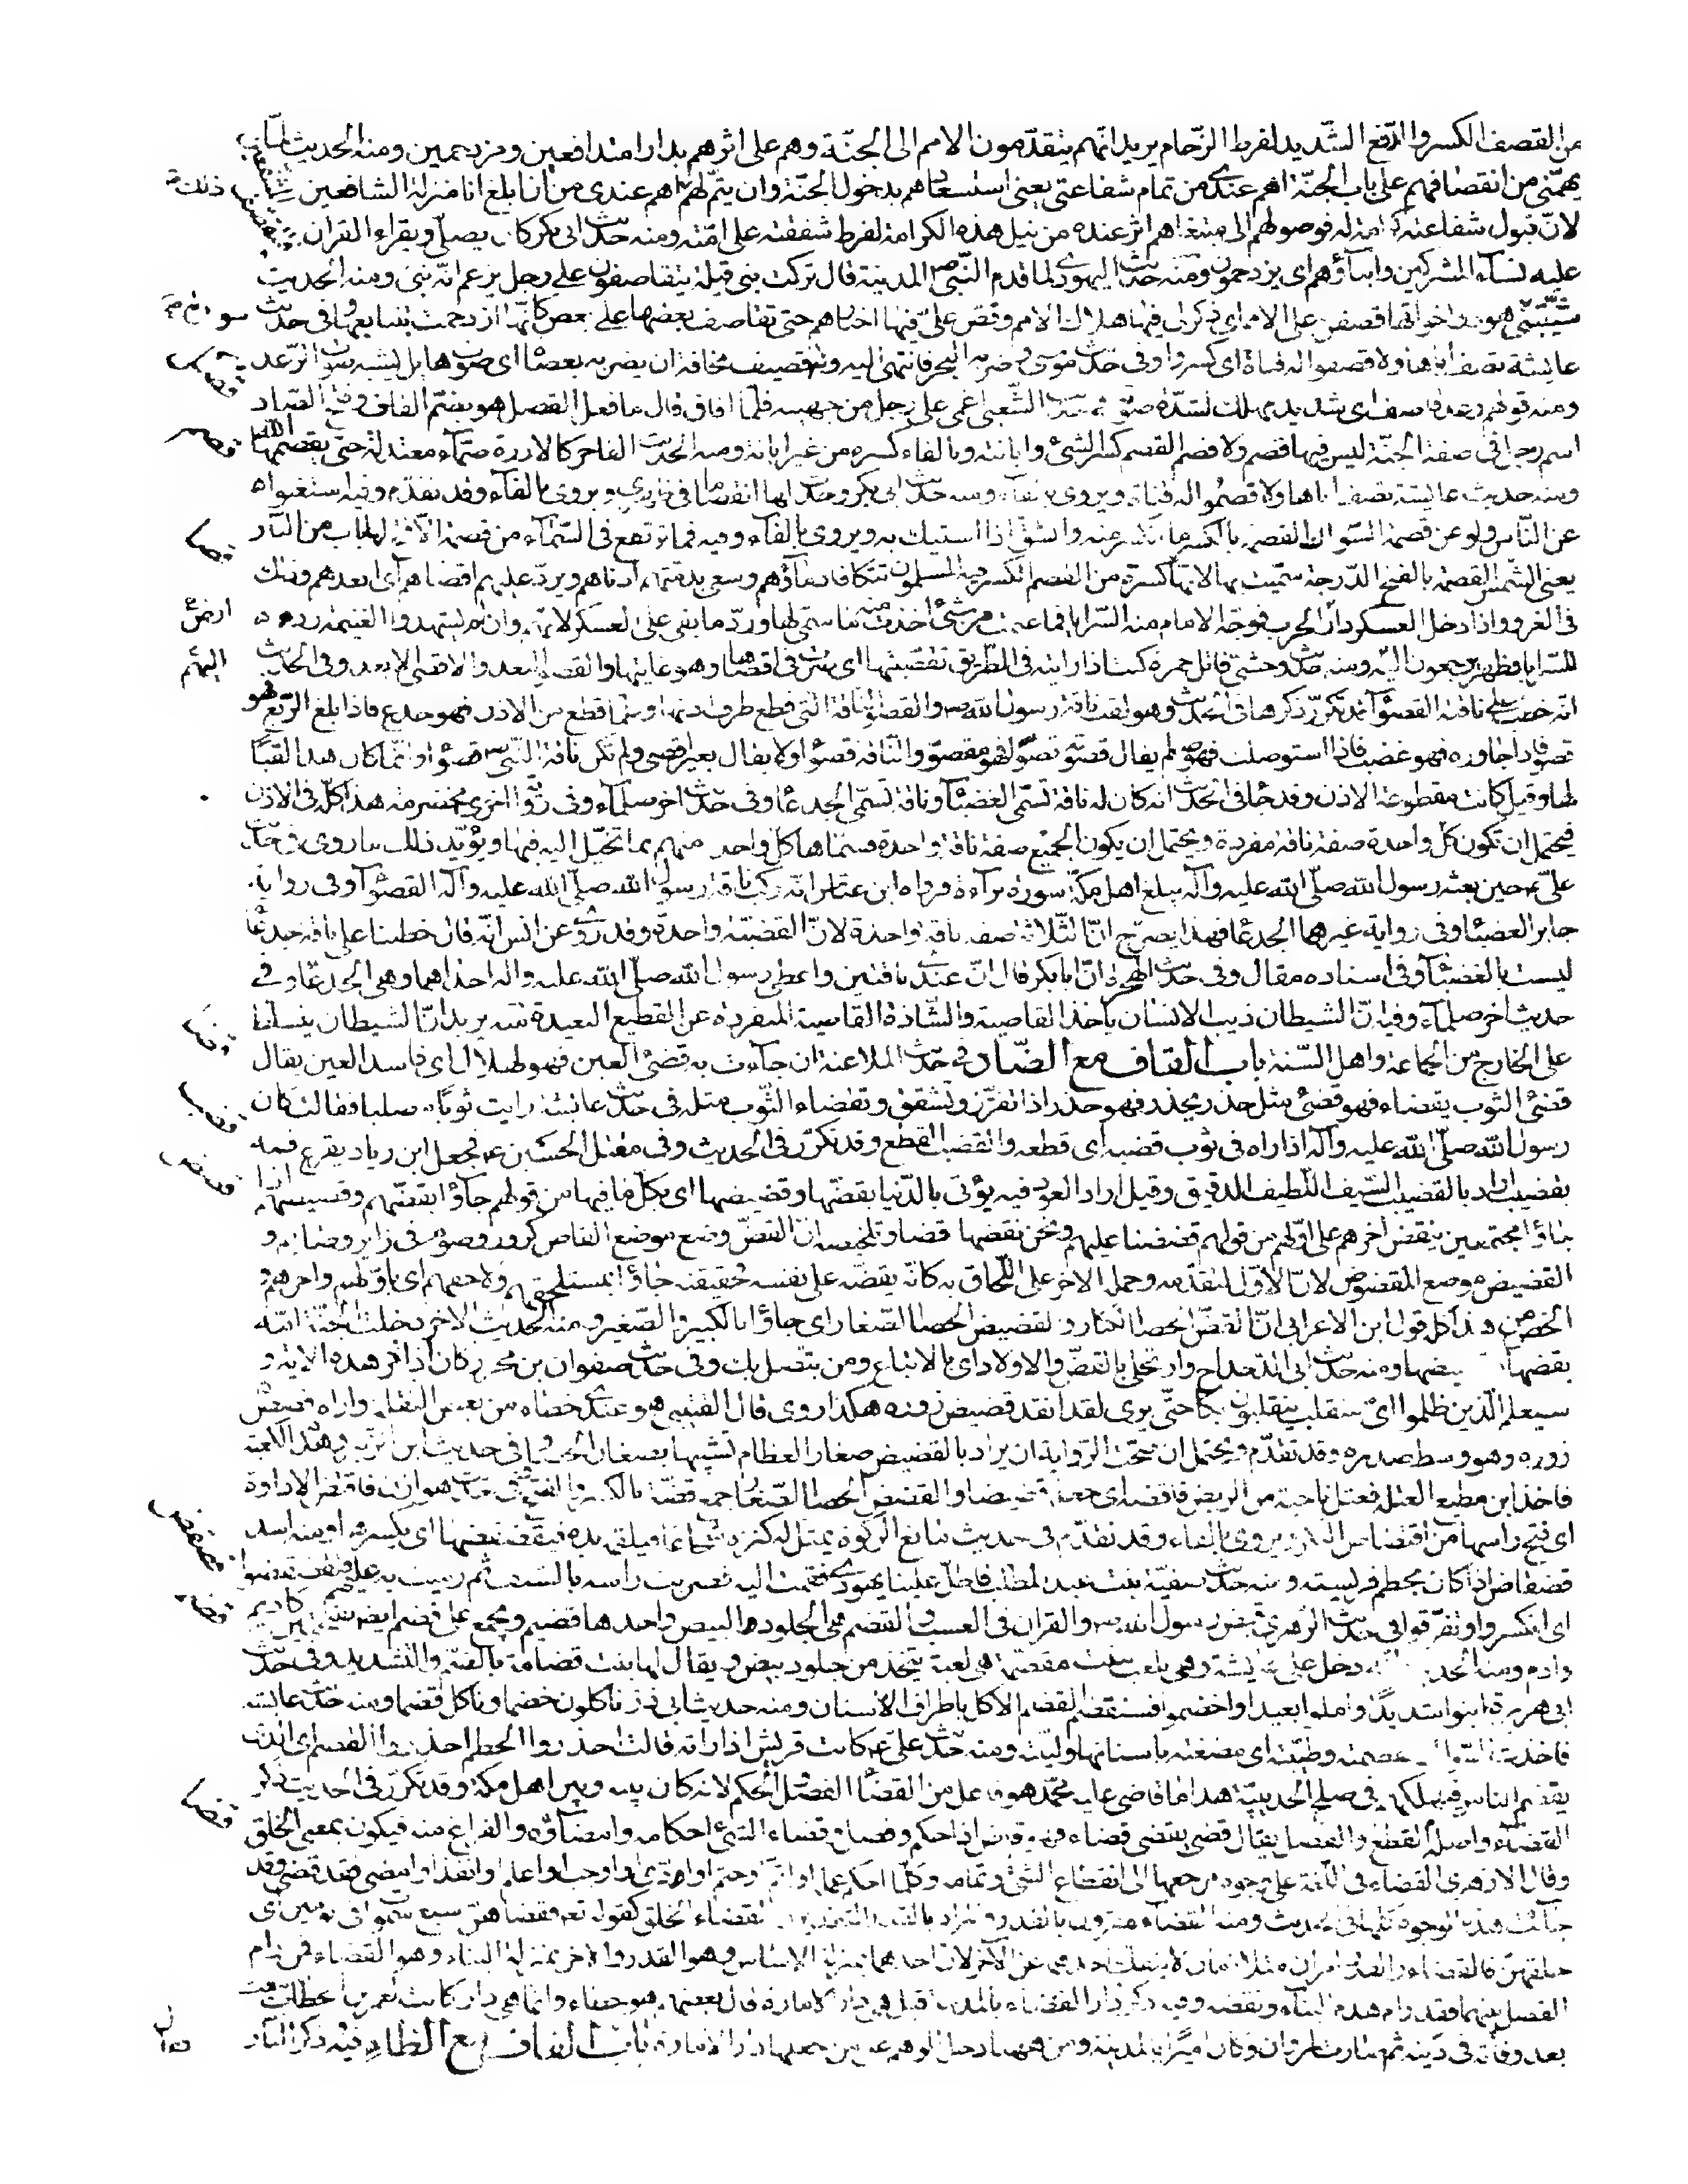 من القصف الكسر والدّفع الشّديد لفرط الزّحام يريد انّهم يتقدّمون الامم الى الجنّة وهم على اثرهم بدارا متدافعين ومزدحمين ومنه الحديث لما
يهمّنى من انقصافهم على باب الجنّة اهم عندى من تمام شفاعتى يعنى استسعادهم بدخول الجنّة وان يتمّ لهم ذلك اهم عندى من ان ابلغ انا منزلة الشافعين
لانّ قبول شفاعته كرامة له فوصولهم الى مبتغاهم اثر عنده من نيل هذه الكرامة لفرط شفقته على امّته ومنه حديث ابى بكر كان يصلّى ويقراء القران
عليه نساء المشركين وابناؤهم اى يزدحمون ومنه حديث اليهودى لما قدم النّبىّ المدينة قال تركت بنى قيلة يتقاصفون على رجل يزعم انّه نبىّ ومنه الحديث
شيّبتنى هود واخواتها قصفن على الامم اى ذكر لى فيها هلاك الامم وقصّ علىّ فيها اخبارهم حتى تقاصف بعضها على بعض كانّها ازدحمت بتتابعها وفى حديث
عايشة تصف اباها ولا قصفوا له قناة اى كسروا وفى حديث موسى وضربه البحر فانتهى اليه وله قصيف مخافة ان يضربه بعصاه اى صوت هايل يشبه صوت الرّعد
ومنه قولهم رعد قاصف اى شديد مهلك لشدّة صوته حديث الشّعبى اغمى على رجل من جهينة فلمّا افاق قال ما فعل القصل هو بضمّ القاف وفتح الصّاد
اسم رجل فى صفة الجنّة ليس فيها قصم ولا فصم القصم كسر الشئ وابانته وبالفاء كسره من غير ابانة ومنه الحديث الفاجر كالارزة صمّاء معتدلة حتى يقصمها الله
ومنه حديث عايشة تصف اباها ولا قصموا له قناة ويروى بالفاء ومنه حديث ابى بكر وجدت انقصاما فى ظهرى ويروى بالفاء وقد تقدّم وفيه استغنوا
عن النّاس ولو عن قصمة السّواك القصمة بالكسر ما انكسر منه وانشقّ اذا استيك به ويروى بالفاء وفيه فما ترتفع فى السّماء من قصمة الّا فتح لها باب من النّار
يعنى الشّمس القصمة بالفتح الدّرجة سمّيت بها لانّها كسرة من القصم الكسر فيه المسلمون تتكافا دماؤهم ويسعى بذمّتهم ادناهم ويردّ عليهم اقصاهم اى ابعدهم وذلك
فى الغزو اذا دخل العسكر دار الحرب فوجّه الامام منه السّرايا فما غنمت من شئ اخذت منه ما سمّى لها وردّ ما بقى على العسكر لانّهم وان لم يشهدوا الغنيمة ردء
للسّرايا وظهر يرجعون اليهم ومنه حديث وحشى قاتل حمزة كنت اذا رايته فى الطّريق تقصّيتها اى صرت فى اقصاها وهو غايتها والقصو البعد والاقصى الابعد وفى الحديث
انّه خطب على ناقته القصواء قد تكرّر ذكرها فى الحديث وهو لقب ناقة رسول الله والقصواء النّاقة التى قطع طرف اذنها وكلّ ما قطع من الاذن فهو جدع فاذا بلغ الرّبع فهو
قصو فاذا جاوزه فهو عضب فاذا استوصلت فهو صلم يقال قصوته قصوا فهو مقصوّ والنّاقة قصواء ولا يقال بعير اقصى ولم تكن ناقة النّبىّ قصواء وانّما كان هذا لقبًا
لها وقيل كانت مقطوعة الاذن وقد جاء فى الحديث انه كان له ناقة تسمّى العضباء وناقة تسمّى الجدعاء وفى حديث اخر صلماء وفى رواية اخرى مخضرمة هذا كلّه فى الاذن
فيحتمل ان تكون كلّ واحدة صفة ناقة مفردة ويحتمل ان يكون الجميع صفة ناقة واحدة فسمّاها كل واحد منهم بما تخيّل اليه فيها ويؤيّد ذلك ما روى فى حديث
علىّ حين بعثه رسول الله صلّى الله عليه وآله يبلغ اهل مكّة سورة براءة فرواه ابن عبّاس انّه ركب ناقة رسول الله صلّى الله عليه وآله القصواء وفى رواية
جابر العضباء وفى رواية غيرهما الجدعاء فهذا يصرّح انّ الثّلاثة صفة ناقة واحدة لانّ القضيّة واحدة وقد روى عن انس انّه قال خطبنا على ناقة جدعاء
ليست بالعضباء وفى اسناده مقال وفى حديث الهجرة انّ ابا بكر قال انّ عندى ناقتين واعطى رسول الله صلّى الله عليه واله احداهما وهى الجدعاء وفى
حديث اخر صلماء وفيه انّ الشيطان ذيب الانسان ياخذ القاصية والشّاذة القاصية المنفردة عن القطيع البعيدة منه يريد انّ الشيطان يتسلّط
على الخارج من الجماعة واهل السّنة باب القاف مع الضّاد فى حديث الملاعنة ان جاءت به قضئ العين فهو لهلال اى فاسد العين يقال
قضئ الثوب يقضاء فهو قضئ مثل حذر يحذر فهو حذر اذا تفزّر وتشقّق وتقضاء الثّوب مثله فى حديث عايشة رايت ثوبًا مصلبا فقالت كان
رسول الله صلّى الله عليه وآله اذا راه فى ثوب قضبه اى قطعه والقضب القطع وقد تكرّر فى الحديث وفى مقتل الحسين فجعل ابن زياد يقرع فمه
بقضيب اراد بالقضيب السّيف اللّطيف الدقيق وقيل اراد العود فيه يؤتى بالدّنيا بقضّها وقضيضها اى بكلّ ما فيها من قولهم جاؤا بقضّهم وقضيضهم اذا
جاؤا مجتمعين ينقضّ اخرهم على اوّلهم من قولهم قضضنا عليهم ونحن نقضّها قضا وتلخيصه انّ القضّ وضع موضع القاض كزور وصوم فى زاير وصايم و
القضيض موضع المقضوض لانّ الاوّل لتقدّمه وحمله الاخر على اللّحاق به كانّه يقضّه على نفسه فحقيقته جاؤا بمستلحقهم ولاحقهم اى باوّلهم واخرهم و
الخص من هذا كلّه قول ابن الاعرابى انّ القضّ الحصا الكبار والقضيض الحصا الصّغار اى جاؤا بالكبير والصّغير ومنه الحديث الاخر دخلت الجنّة امّة
بقضّها وقضيضها ومنه حديث ابى الدّحداح وارتحلى بالقضّ والاولاد اى بالاتباع ومن يتّصل بك وفى حديث صفوان بن محرز كان اذا قرء هذه الاية و
سيعلم الّذين ظلموا اىّ منقلب ينقلبون بكى حتّى يرى لقد انقدّ قضيض زوره هكذا روى قال القتيبى هو عندى خطاء من بعض النقلة واراه قصص
زوره وهو وسط صدره وقد تقدّم ويحتمل ان صحّت الرّواية ان يراد بالقضيض صغار العظام تشبيها بصغار الحصا وفى حديث ابن الزّبير وهدم الكعبة
فاخذ ابن مطيع العتلة فعتل ناحية من الربض فاقضّه اى جعله قضيضا والقضيض الحصا الصّغار جمع قضّة بالكسر والفتح وفى حديث هوازن فاقتضّ الاداوة
اى فتح راسها من اقتضاض البكر ويروى بالفاء وقد تقدّم فى حديث مانع الزّكوة يمثّل له كنزه شجاعا فيلقمه يده فيقضقضها اى يكسرها ومنه اسد
قضقاض اذا كان يحطم فريسته ومنه حديث صفيّة بنت عبد المطّلب فاطلّ علينا يهودى فقمت اليه فضربت راسه بالسّيف ثم رميت به عليهم فتقضقضوا
اى انكسروا وتفرّقوا فى حديث الزّهرى قبض رسول الله والقران فى العسب والقضم هى الجلود البيض واحدها قضيم ويجمع على قضم ايضا بفتحتين كاديم
وادم ومنه الحديث انّه دخل على عايشة وهى تلعب ببنت مقضّمة هى لعبة تتّخذ من جلود بيض ويقال لها بنت قضامة بالضّم والتشديد وفى حديث
ابى هريرة ابنوا شديدًا واملوا بعيدا واخضموا فسنقضم القضم الاكل باطراف الاسنان ومنه حديث ابى ذر تاكلون خضما وناكل قضما ومنه حديث عايشة
فاخذت السّواك فقضمته وطيّبته اى مضغته باسنانها وليّنته ومنه حديث علىّ كانت قريش اذا راته قالت احذروا الحطم احذروا القضم اى الذى
يقضم الناس فيهلكهم فى صلح الحديبيّة هذا ما قاضى عليه محمّد هو فاعل من القضاء الفصل والحكم لانه كان بينه وبين اهل مكة وقد تكرّر فى الحديث ذكر
القضاء واصله القطع والفصل يقال قضى يقضى قضاء فهو قاض اذا حكم وفصل وقضاء الشئ احكامه وامضاؤه والفراغ منه فيكون بمعنى الخلق
وقال الازهرى القضاء فى اللّغة على وجوه مرجعها الى انقطاع الشئ وتمامه وكلّما احكم عمله او اتمّ او ختم او ادّى او اوجب او اعلم او انفذ او امضى فقد قضى وقد
جاءت هذه الوجوه كلّها فى الحديث ومنه القضاء مقرون بالقدر والمراد بالقدر التقدير وبالقضاء الخلق كقوله تعالى فقضاهنّ سبع سموات فى يومين اى
خلقهنّ فالقضاء والقدر امران متلازمان لا ينفكّ احدهما عن الاخر لانّ احدهما بمنزلة الاساس وهو القدر والاخر بمنزلة البناء وهو القضاء فمن رام
الفصل بينهما فقد رام هدم البناء ونقضه وفيه ذكر دار القضاء بالمدينة قيل هى دار الامارة قال بعضهم هو خطاء وانّما هى دار كانت لعمر بن الخطّاب بيعت
بعد وفاته فى دينه ثم صارت لمروان وكان اميرًا بالمدينة ومن ههنا دخل الوهم على من جعلها دار الامارة باب القاف مع الظاء فيه ذكر النّار